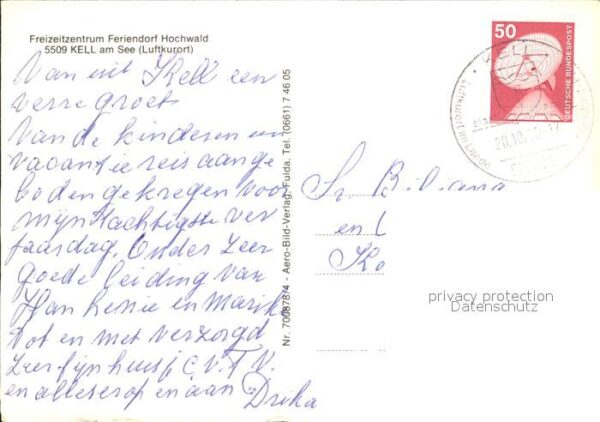 Freizeitzentrum Feriendorf Hochwald
5509 KELL am See (Luftkurort)
Van uit Kell een
verre groet
Van de kinderen een
vacantie reis aange
boden gekregen voor
mijn tachtigste ver
jaardag. Onder zeer
goede leiding van
Han hennie en Marik
tot en met verzorgd
zeer fijn huisj c.v. T.V.
en alles er op en aan
Drika
Nr. 70087874 · Aero-Bild-Verlag, Fulda, Tel. (0661) 7 46 05
50
DEUTSCHE BUNDESPOST
KELL
Luftkurort im Lande
20.10.
Sr. B.
en
Ko
privacy protection
Datenschutz